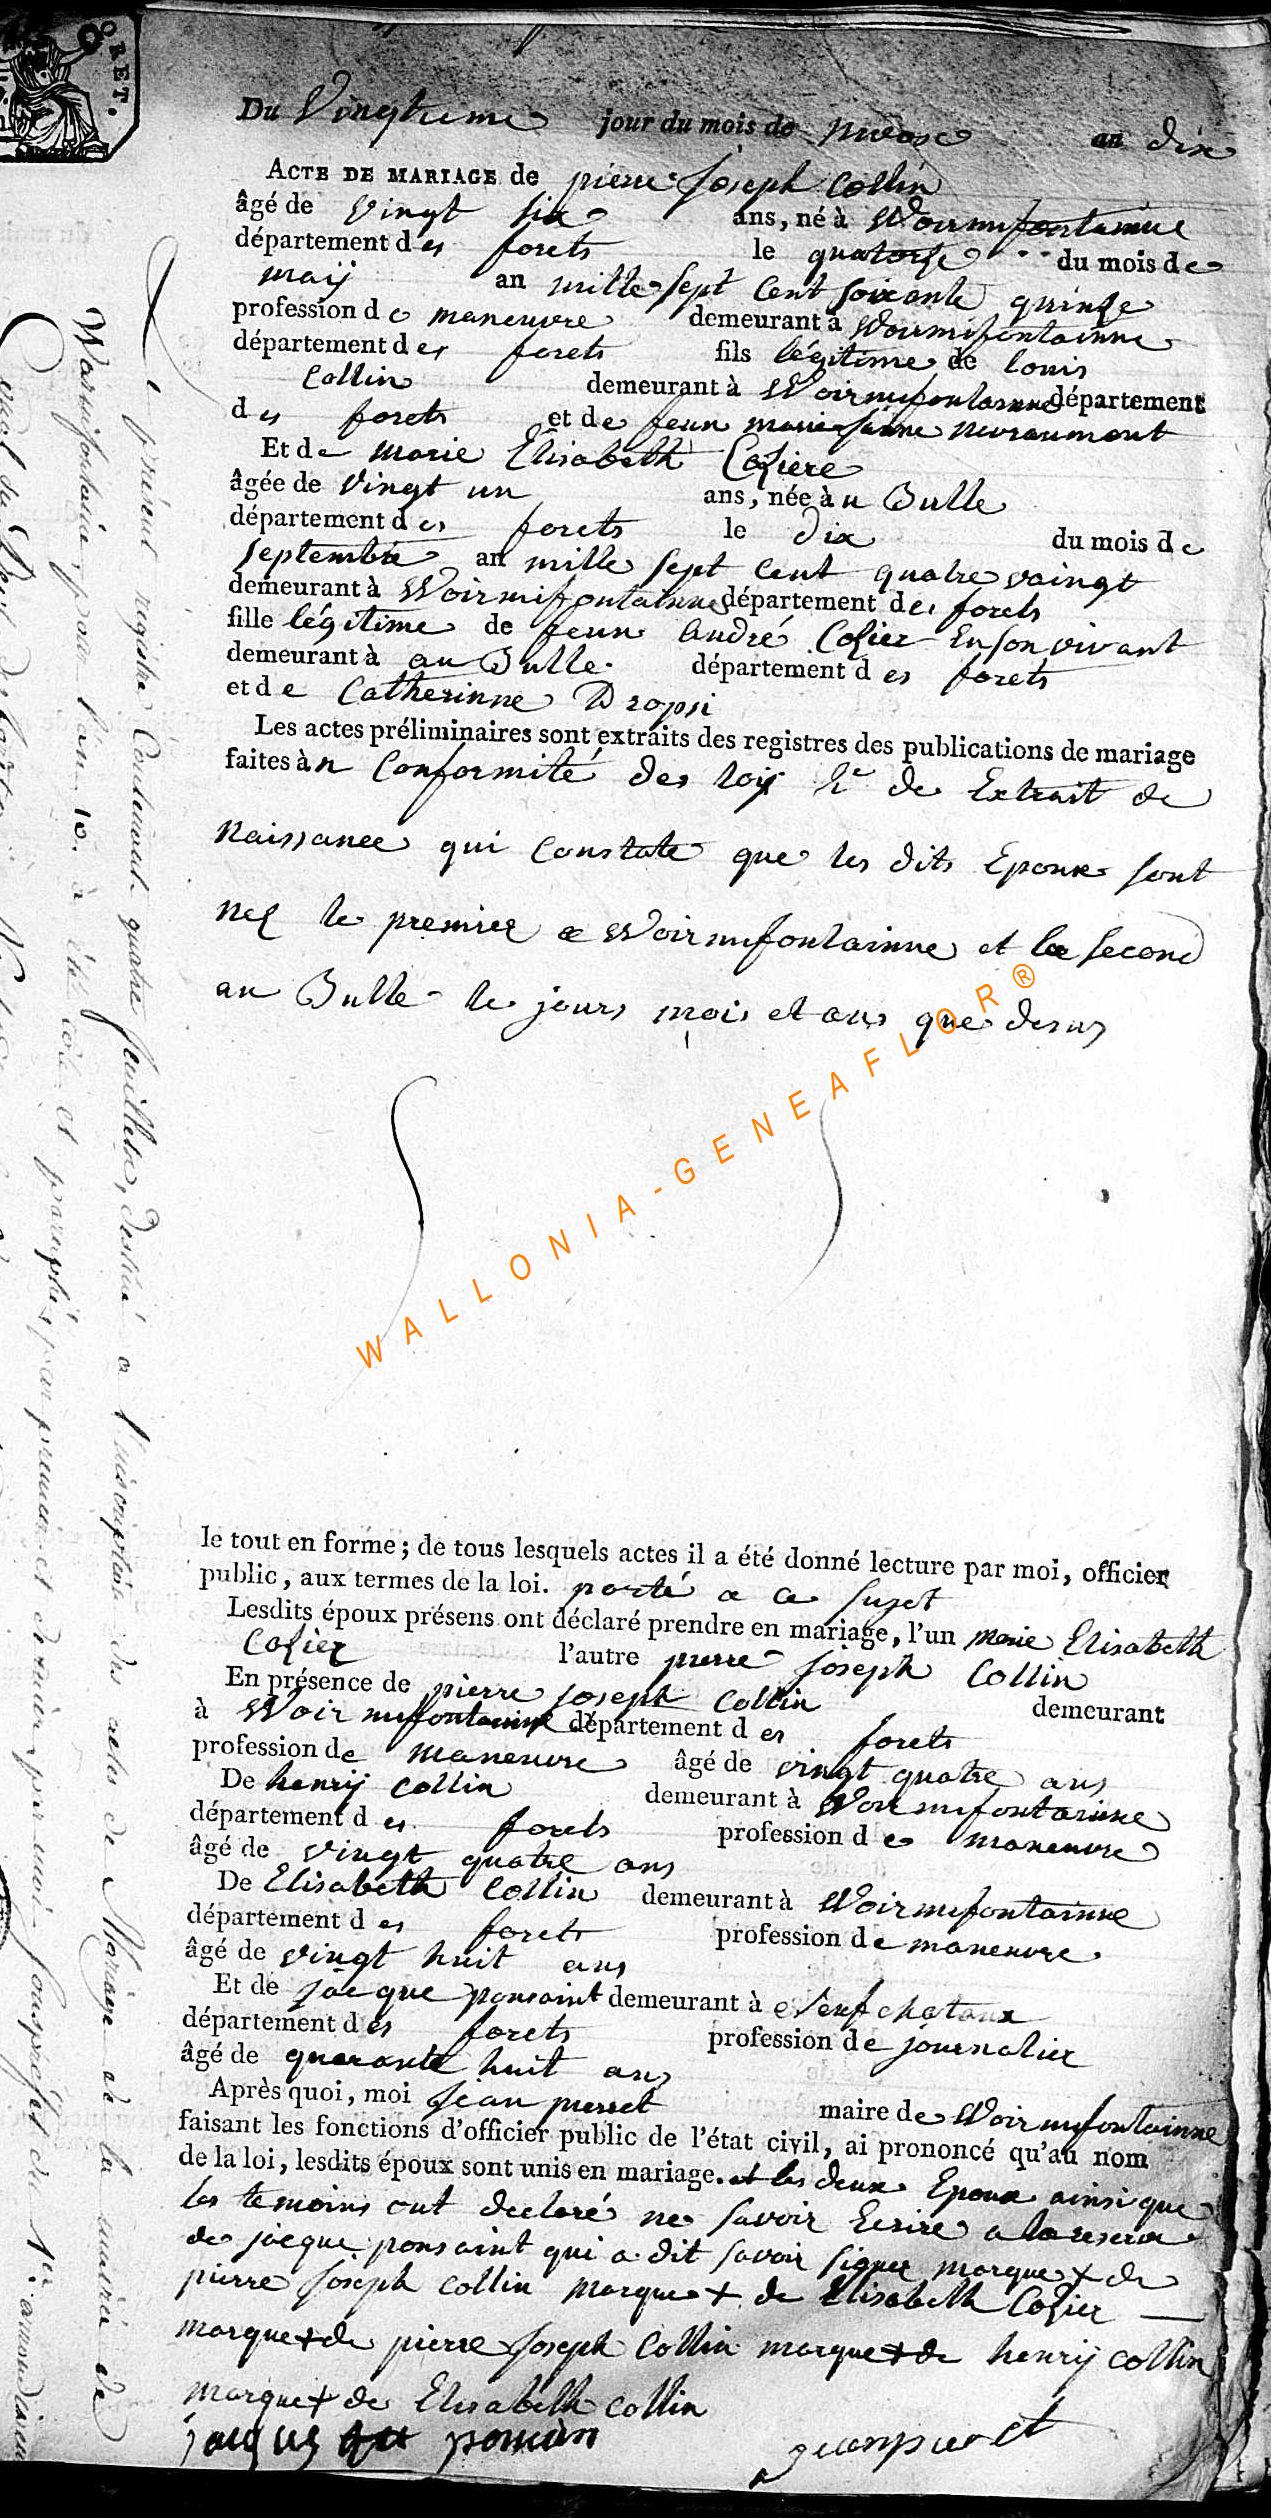 CRET.
Du Vingtieme jour du mois de nivose an dix
ACTE DE MARIAGE de pierre Joseph Collin
âgé de vingt six ans, né à Woirmifontainne
département des forets le quatorse du mois de
maij an mille sept Cent soixante quinze
profession de maneuvre demeurant à Woirmifontainne
département des forets fils légitime de louis
Collin demeurant à Woirmifontainne département
des forets et de feun marie Jeanne Nevraumont
Et de Marie Elisabeth Cosiere
âgée de vingt un ans, née à u Bulle
département des forets le dix du mois de
septembre an mille sept cent quatre vaingt
demeurant à Woirmifontainne département des forets
fille légitime de feun André Cosier En son vivant
demeurant à au Bulle département des forets
et de Catherinne Dropsi
Les actes préliminaires sont extraits des registres des publications de mariage
faites à n Conformité des loys de Extrait de
Naissance qui Constate que les dits Epoux sont
nez le premier a Woirmifontainne et la second
au Bulle le jours mois et ans que desus
WALLONIA-GENEAFLOR®
le tout en forme; de tous lesquels actes il a été donné lecture par moi, officier
public, aux termes de la loi. porté a ce sujet
Lesdits époux présens ont déclaré prendre en mariage, l'un Marie Elisabeth
Cosier l'autre pierre Joseph Collin
En présence de pierre Joseph Collin demeurant
à Woirmifontainne département des forets
profession de maneuvre âgé de vingt quatre ans
De henrij Collin demeurant à Woirmifontainne
département des forets profession de maneuvre
âgé de vingt quatre ans
De Elisabeth Collin demeurant à Woirmifontainne
département des forets profession de maneuvre
âgé de vingt huit ans
Et de Jacque ponsaint demeurant à Neufchataux
département des forets profession de journalier
âgé de quarante huit ans
Après quoi, moi Jean pierret maire de Woirmifontainne
faisant les fonctions d'officier public de l'état civil, ai prononcé qu'au nom
de la loi, lesdits époux sont unis en mariage. et les deux Epoux ainsi que
les temoins ont declaré ne savoir Ecrire a la reserve
de jacque ponsaint qui a dit savoir signer marque + de
pierre Joseph Collin marque + de Elisabeth Cosier
marque + de pierre Joseph Collin marque + de henrij collin
marque + de Elisabeth collin
jeanpierret
Le présent registre Contenant quatre feuillets, destiné à l'inscription des actes de Mariage de la mairie de
Warmifontaine, pour l'an 10. à été coté et paraphé, par premier et dernier par moi Souspréfet du 1er arrondissement